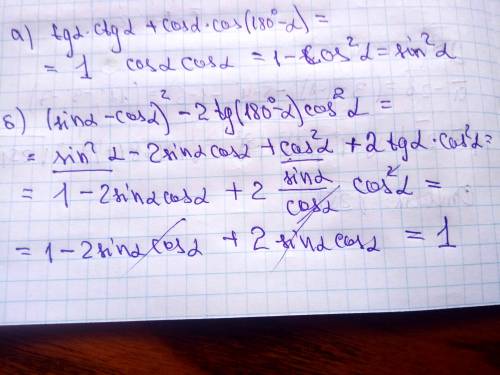 а) tgα·ctgα + cosα·cos(180°-α) =
= 1 cosα cosα = 1 - cos²α = sin²α
б) (sinα - cosα)² - 2tg(180°-α)cos²α =
= sin²α - 2sinαcosα + cos²α + 2tgα·cos²α =
= 1 - 2sinαcosα + 2 sinα/cosα cos²α =
= 1 - 2sinαcosα + 2sinαcosα = 1